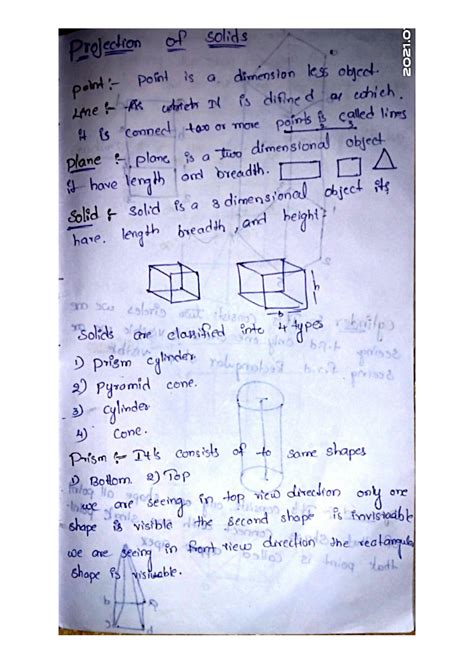 Projection of solids
2021.0
point :- point is a dimension less object.
Line :- which is difined as which.
it is connect two or more points is called lines
plane :- plane is a Two dimensional object
it have length and breadth.
Solid :- Solid is a 3 dimensional object its
have. length breadth, and height.
h
b
Solids are classified into 4 types
1) prism cylinder
2) pyramid cone.
3) cylinder.
4) cone.
Prism :- It's consists of to same shapes
1) Bottom 2) Top
we are seeing in top view direction only one
shape is visible the second shape is
we are seeing in front view direction the rectangular
shape is